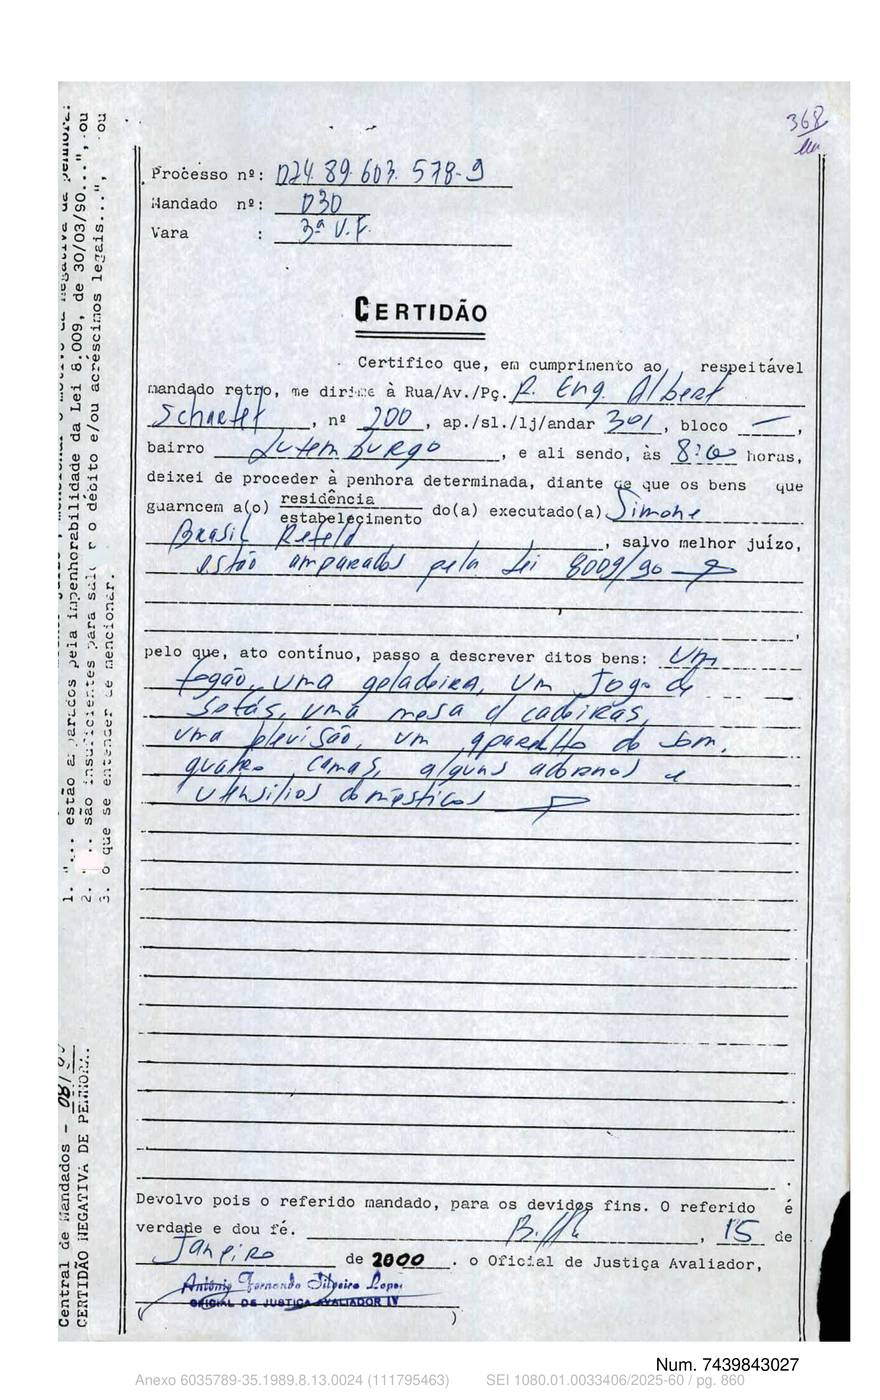 368
Processo nº: 024.89.603.578-9
Mandado nº: 030
Vara : 3ª V.F.
CERTIDÃO
Certifico que, em cumprimento ao respeitável
mandado retro, me dirige à Rua/Av./Pç. R. Eng. Albert
Schaefer, nº 200, ap./sl./lj/andar 301, bloco —,
bairro Lutemburgo, e ali sendo, às 8:00 horas,
deixei de proceder à penhora determinada, diante de que os bens que
guarncem a(o) residência
estabelecimento do(a) executado(a) Simone
Brasil , salvo melhor juízo,
estão amparados pela Lei 8009/90
pelo que, ato contínuo, passo a descrever ditos bens: Um
fogão, uma geladeira, um jogo de
sofás, uma mesa c/ cadeiras,
uma televisão, um aparelho de som,
quatro camas, alguns adornos e
utensílios domésticos
Devolvo pois o referido mandado, para os devidos fins. O referido é
verdade e dou fé. B.Hte, 15 de
Janeiro de 2000. o Oficial de Justiça Avaliador,
Antônio Fernando Silveira Lopes
OFICIAL DE JUSTIÇA AVALIADOR IV
( )
1. "... estão amparados pela impenhorabilidade da Lei 8.009, de 30/03/90...", ou
2. "... são insuficientes para saldar o débito e/ou acréscimos legais...", ou
3. o que se entender de mencionar.
Central de Mandados -
CERTIDÃO NEGATIVA DE PENHORA.
Num. 7439843027
Anexo 6035789-35.1989.8.13.0024 (111795463) SEI 1080.01.0033406/2025-60 / pg. 860